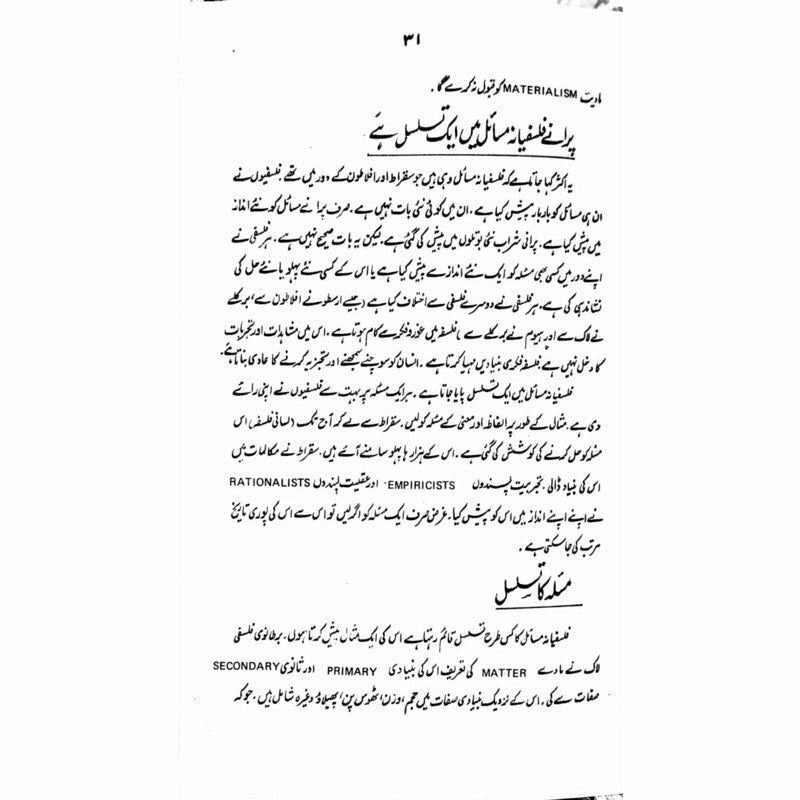 ۳۱
مادیت MATERIALISM کو قبول نہ کرے گا ۔
پرانے فلسفیانہ مسائل میں ایک تسلسل ہے
یہ اکثر کہا جاتا ہے کہ فلسفیانہ مسائل وہی ہیں جو سقراط اور افلاطون کے دور میں تھے ۔ فلسفیوں نے
ان ہی مسائل کو بار بار پیش کیا ہے ۔ ان میں کوئی نئی بات نہیں ہے ۔ صرف پرانے مسائل کو نئے انداز
میں پیش کیا ہے ۔ پرانی شراب نئی بوتلوں میں پیش کی گئی ہے لیکن یہ بات صحیح نہیں ہے ۔ ہر فلسفی نے
اپنے دور میں کسی بھی مسئلہ کو ایک نئے انداز سے پیش کیا ہے یا اس کے کسی نئے پہلو یا نئے حل کی
نشاندہی کی ہے ۔ ہر فلسفی نے دوسرے فلسفی سے اختلاف کیا ہے (جیسے ارسطو نے افلاطون سے ، برکلے
نے لاک سے اور ہیوم نے برکلے سے) فلسفہ میں غور و فکر سے کام ہوتا ہے ۔ اس میں مشاہدات اور تجربات
کا دخل نہیں ہے فلسفہ فکری بنیادیں مہیا کرتا ہے ۔ انسان کو سوچنے سمجھنے اور تجزیہ کرنے کا عادی بناتا ہے ۔
فلسفیانہ مسائل میں ایک تسلسل پایا جاتا ہے ۔ ہر ایک مسئلہ پر بہت سے فلسفیوں نے اپنی رائے
دی ہے ۔ مثال کے طور پر الفاظ اور معنی کے مسئلہ کو لیں ۔ سقراط سے لے کر آج تک (لسانی فلسفہ) اس
مسئلہ کو حل کرنے کی کوشش کی گئی ہے ۔ اس کے ہزارہا پہلو سامنے آئے ہیں ۔ سقراط نے مکالمات میں
اس کی بنیاد ڈالی ۔ تجربیت پسندوں EMPIRICISTS ۔ اور عقلیت پسندوں RATIONALISTS
نے اپنے اپنے انداز میں اس کو پیش کیا ۔ غرض صرف ایک مسئلہ کو اگر لیں تو اس سے اس کی پوری تاریخ
مرتب کی جا سکتی ہے ۔
مسئلہ کا تسلسل
فلسفیانہ مسائل کا کس طرح تسلسل قائم رہتا ہے اس کی ایک مثال پیش کرتا ہوں ۔ برطانوی فلسفی
لاک نے مادے MATTER کی تعریف اس کی بنیادی PRIMARY اور ثانوی SECONDARY
صفات سے کی ۔ اس کے نزدیک بنیادی صفات میں حجم ، وزن ، ٹھوس پن ، پھیلاؤ وغیرہ شامل ہیں ۔ جو کہ